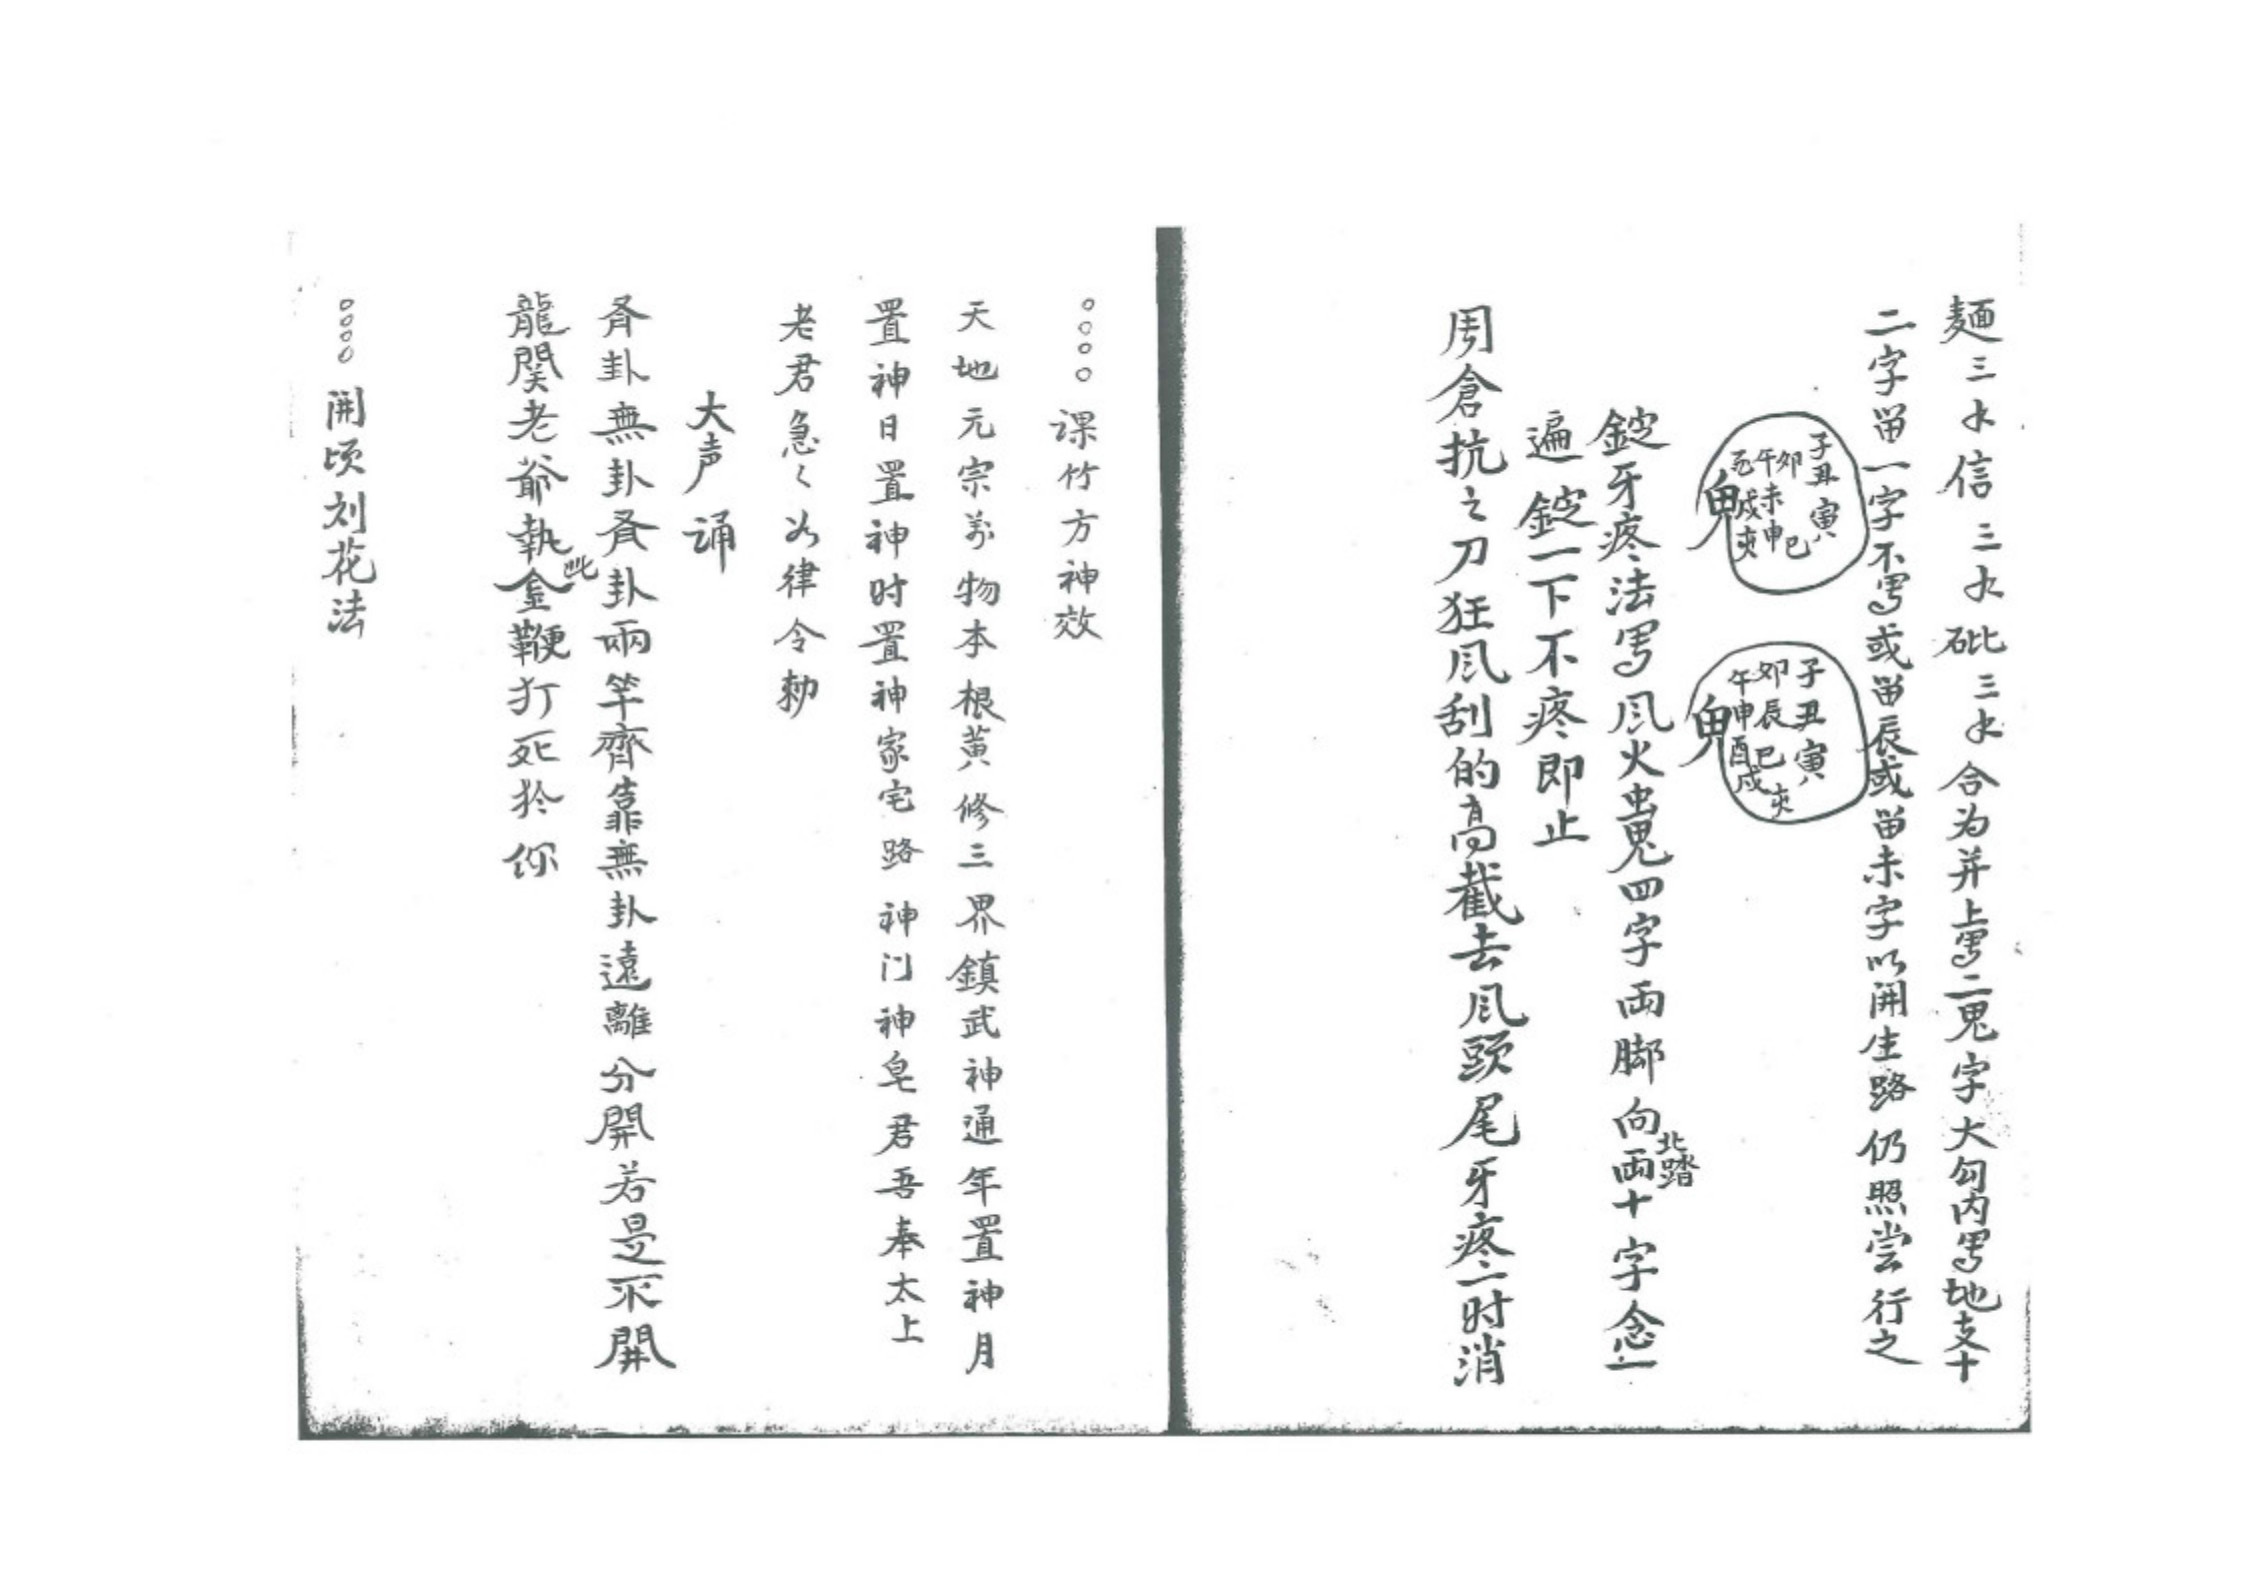 麺三水信三水砒三水合为并上写二鬼字大勾内写地支十
二字留一字不写或留辰或留未字以開生路仍照嘗行之
子丑寅
卯 巳
午未申
戌亥
鬼
子丑寅
卯辰巳亥
午申酉戌
鬼
錠牙疼法写風火虫鬼四字両脚向両十字念一
北踏
遍錠一下不疼即止
周倉抗之刀狂風刮的高截去風頭尾牙疼二时消
○○○○課竹方神效
天地元宗万物本根黄修三界鎮武神通年置神月
置神日置神时置神家宅路神门神皂君吾奉太上
老君急々如律令勅
大声诵
有卦無卦有卦兩竿齊靠無卦遠離分開若是不開
龍関老爺執金鞭打死於你
此
○○○○開頃刘花法